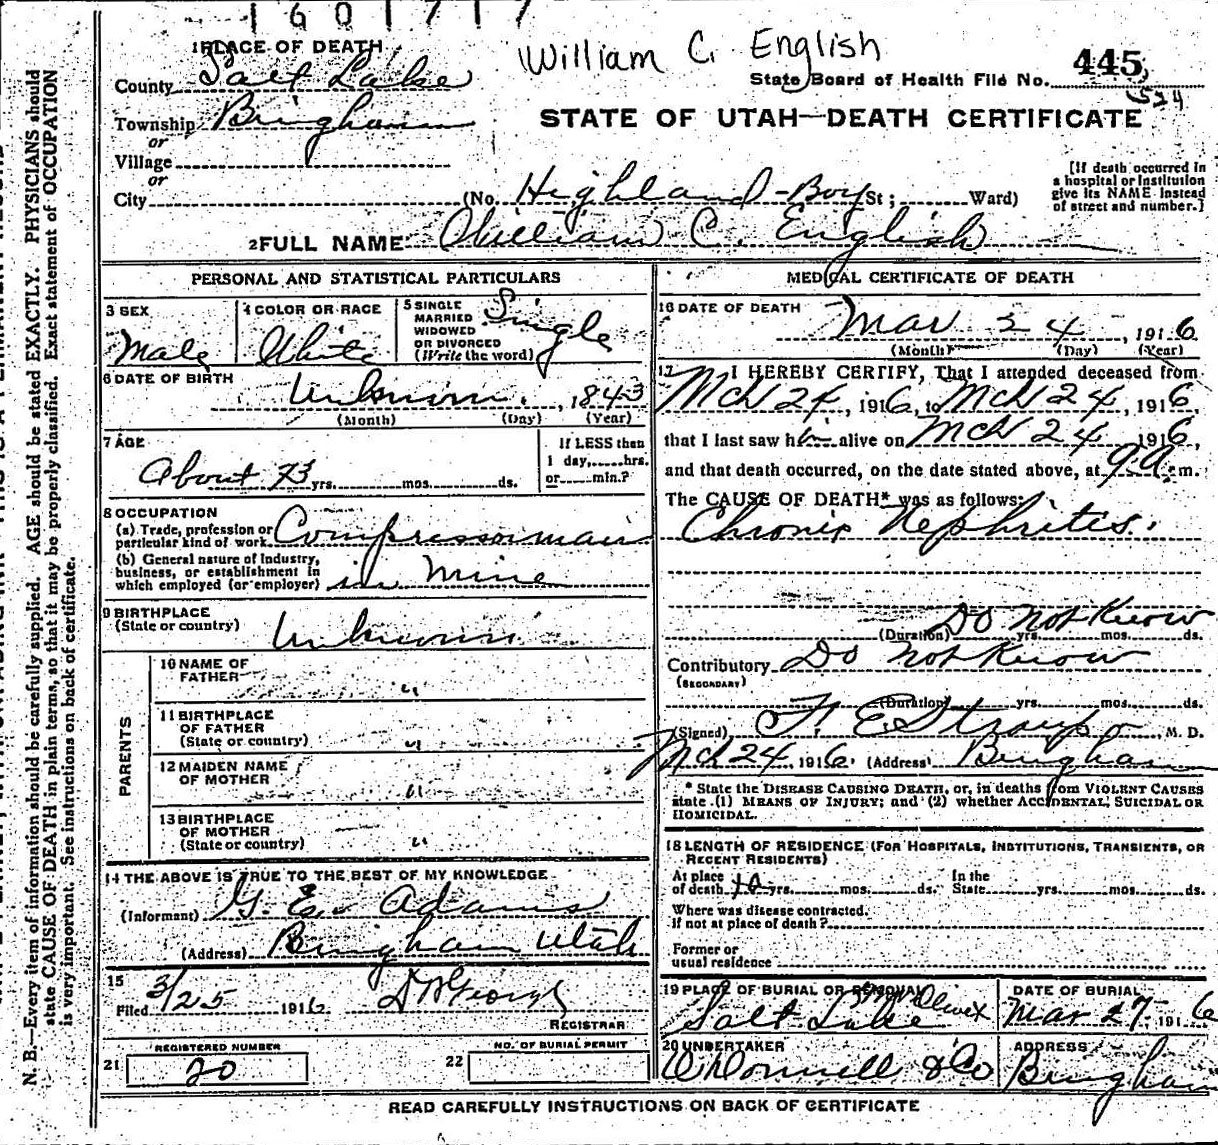 1601717
William C. English
1 PLACE OF DEATH
County Salt Lake
State Board of Health File No. 445
524
Township Bingham
or
STATE OF UTAH—DEATH CERTIFICATE
Village
or
City (No. Highland-Boy St; Ward)
[If death occurred in
a hospital or institution
give its NAME instead
of street and number.]
2 FULL NAME William C. English
PERSONAL AND STATISTICAL PARTICULARS
3 SEX
Male
4 COLOR OR RACE
White
5 SINGLE
MARRIED
WIDOWED
OR DIVORCED
(Write the word)
Single
6 DATE OF BIRTH
Unknown , 1843
(Month) (Day) (Year)
7 AGE
About 73 yrs. mos. ds.
If LESS then
1 day, hrs.
or min.?
8 OCCUPATION
(a) Trade, profession or
particular kind of work Compressorman
(b) General nature of industry,
business, or establishment in
which employed (or employer) in Mine
9 BIRTHPLACE
(State or country) Unknown
PARENTS
10 NAME OF
FATHER "
11 BIRTHPLACE
OF FATHER
(State or country) "
12 MAIDEN NAME
OF MOTHER "
13 BIRTHPLACE
OF MOTHER
(State or country) "
14 THE ABOVE IS TRUE TO THE BEST OF MY KNOWLEDGE
(Informant) G. E. Adams
(Address) Bingham Utah
15
Filed 3/25 1916
REGISTRAR
REGISTERED NUMBER
21 20
NO. OF BURIAL PERMIT
22
MEDICAL CERTIFICATE OF DEATH
16 DATE OF DEATH
Mar 24 , 1916
(Month) (Day) (Year)
17 I HEREBY CERTIFY, That I attended deceased from
Mch 24, 1916, to Mch 24, 1916,
that I last saw him alive on Mch 24 1916,
and that death occurred, on the date stated above, at 9 A. m.
The CAUSE OF DEATH* was as follows:
Chronic Nephrites.
(Duration) Do Not Know yrs. mos. ds.
Contributory Do Not Know
(SECONDARY)
(Duration) yrs. mos. ds.
(Signed) F. E. Straup M. D.
Mch 24, 1916. (Address) Bingham
* State the DISEASE CAUSING DEATH, or, in deaths from VIOLENT CAUSES
state (1) MEANS OF INJURY; and (2) whether ACCIDENTAL, SUICIDAL OR
HOMICIDAL.
18 LENGTH OF RESIDENCE (FOR HOSPITALS, INSTITUTIONS, TRANSIENTS, OR
RECENT RESIDENTS)
At place
of death 10 yrs. mos. ds.
In the
State yrs. mos. ds.
Where was disease contracted.
if not at place of death?
Former or
usual residence
19 PLACE OF BURIAL OR REMOVAL
Mt Olivet
Salt Lake
DATE OF BURIAL
Mar 27, 1916
20 UNDERTAKER
O'Donnell & Co
ADDRESS
Bingham
READ CAREFULLY INSTRUCTIONS ON BACK OF CERTIFICATE
N. B.—Every item of information should be carefully supplied. AGE should be stated EXACTLY. PHYSICIANS should
state CAUSE OF DEATH in plain terms, so that it may be properly classified. Exact statement of OCCUPATION
is very important. See instructions on back of certificate.